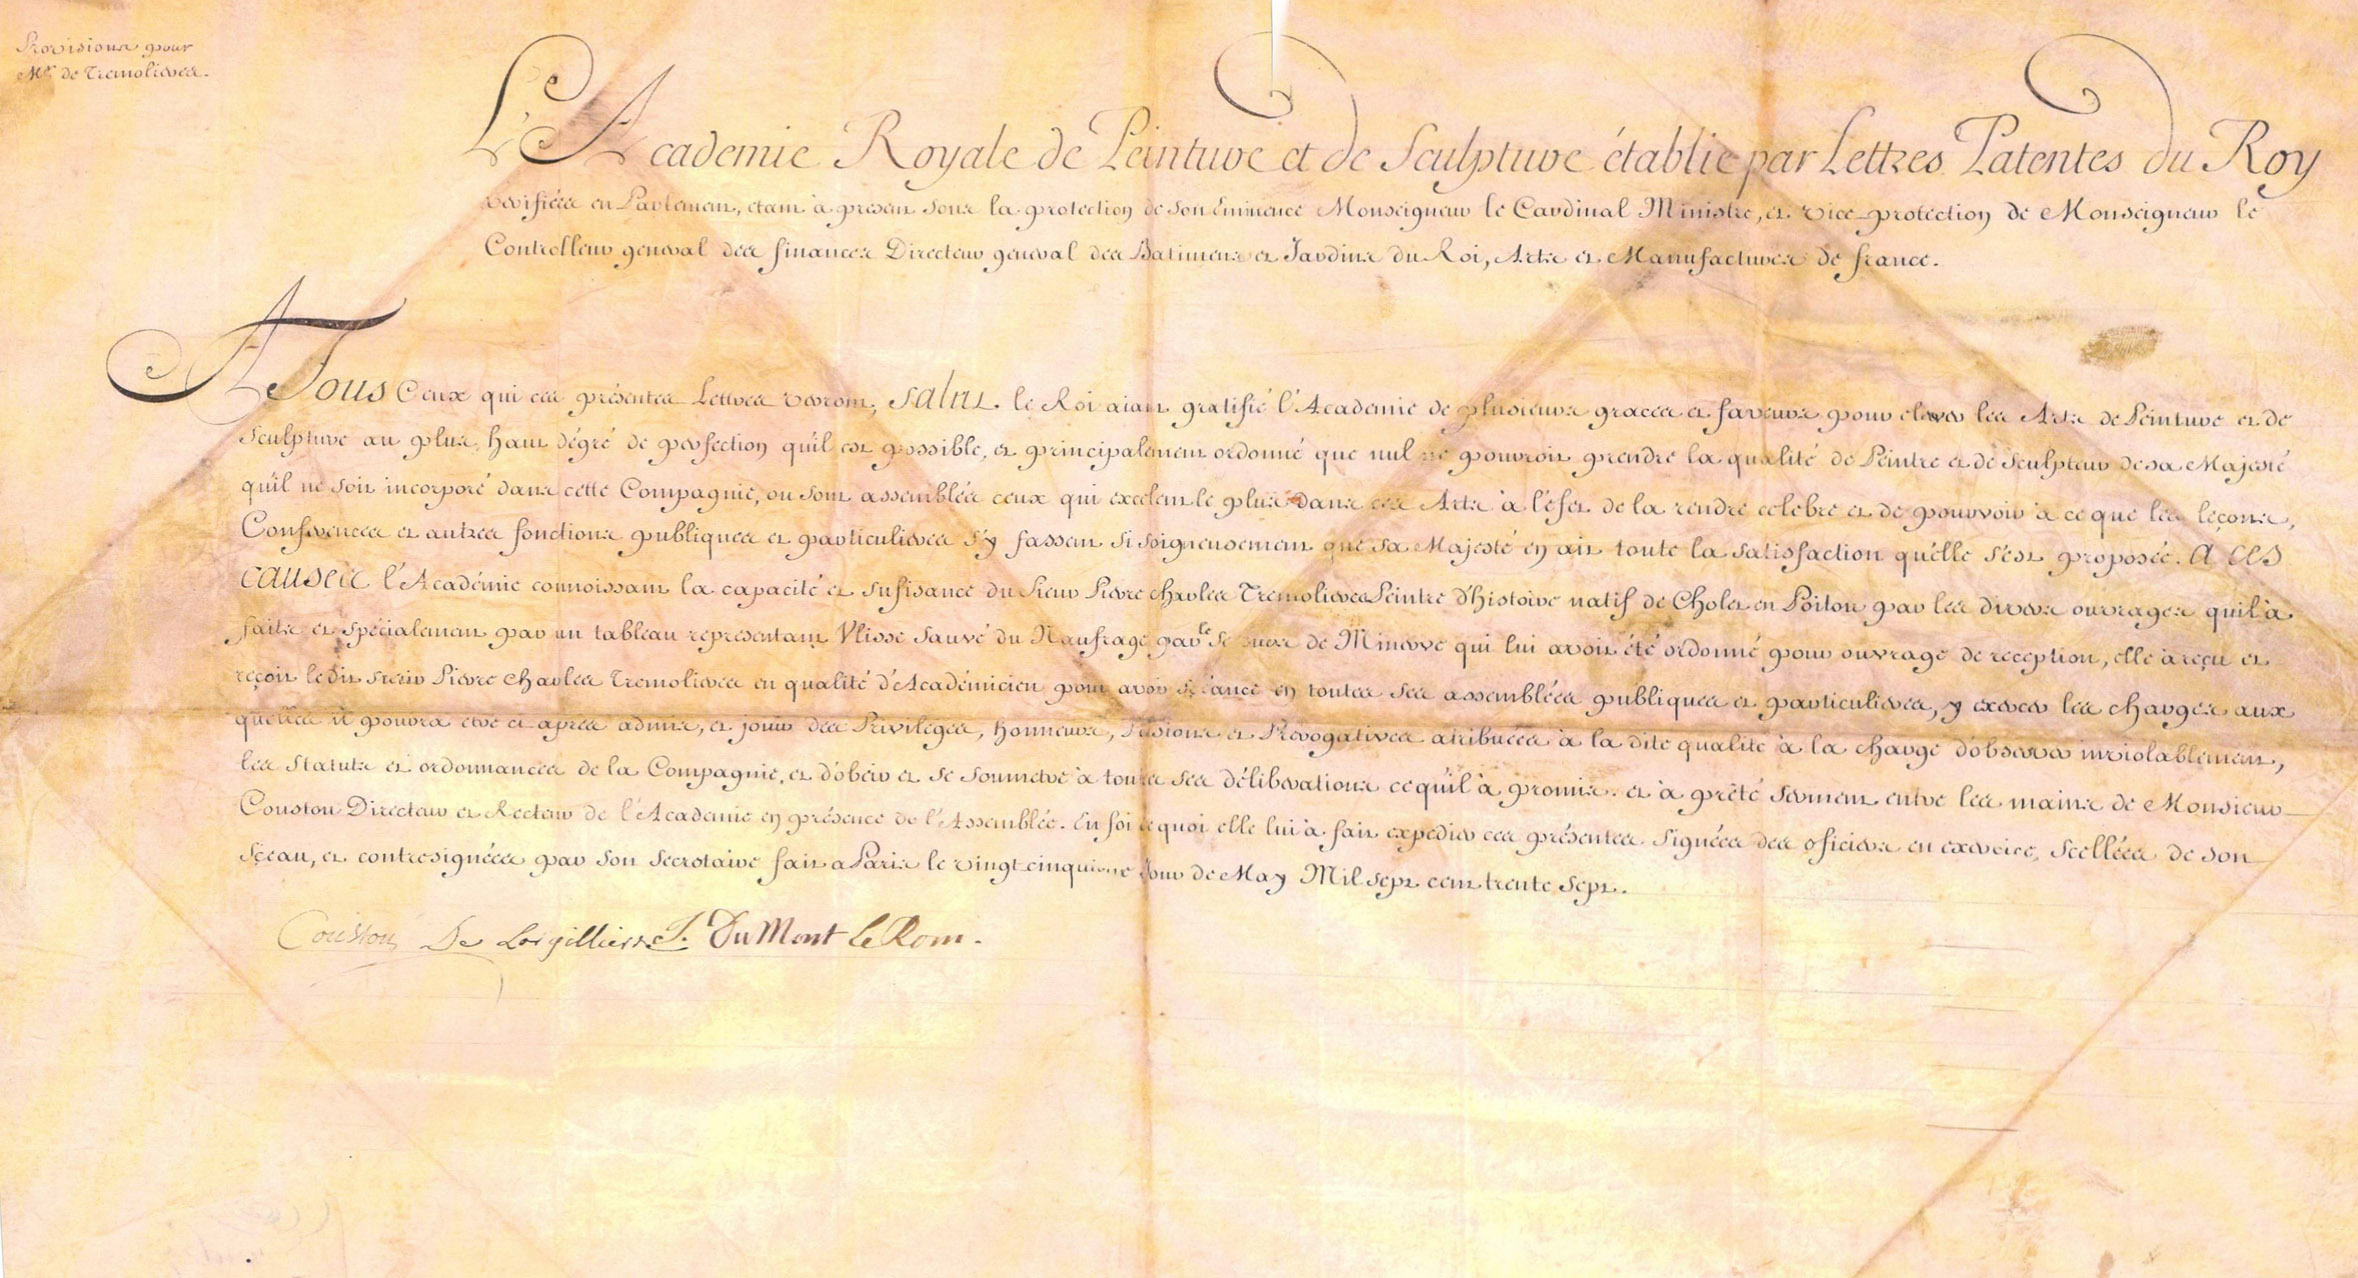 Provisions pour
Mr. de Tremolieres.
L'Academie Royale de Peinture et de Sculpture établie par Lettres Patentes du Roy
verifiées en Parlement, etant à present sous la protection de son Eminence Monseigneur le Cardinal Ministre, et vice-protection de Monseigneur le
Controlleur general des finances Directeur general des Batimens et Jardins du Roi, Arts et Manufactures de france.
A Tous Ceux qui ces présentes Lettres verront, Salut. le Roi aiant gratifié l'Academie de plusieurs graces et faveurs pour elever les Arts de Peinture et de
Sculpture au plus haut dégré de perfection qu'il est possible, et principalement ordonné que nul ne pouroit prendre la qualité de Peintre et de Sculpteur de sa Majesté
qu'il ne soit incorporé dans cette Compagnie, ou sont assemblés ceux qui excelent le plus dans ces Arts à l'éfet de la rendre celebre et de pourvoir à ce que les leçons,
Conferences et autres fonctions publiques et particulieres s'y fassent si soigneusement que sa Majesté en ait toute la satisfaction qu'elle s'est proposée. A ces
causes l'Académie connoissant la capacité et sufisance du Sieur Pierre charles Tremolieres Peintre d'histoire natif de Cholet en Poitou par les divers ouvrages qu'il à
faits et spécialement par un tableau representant Ulisse Sauvé du Naufrage par le Secours de Minerve qui lui avoit été ordonné pour ouvrage de reception, elle à reçu et
reçoit le dit Sieur Pierre charles Tremolieres en qualité d'Académicien pour avoir séance en toutes ses assemblées publiques et particulieres, y exercer les charges aux
quelles il poura etre ci apres admis, et jouir des Privileges, honneurs, Pensions et Prérogatives atribuées à la dite qualité à la charge d'observer inviolablement,
les Statuts et ordonnances de la Compagnie, et d'obeir et se soumetre à toutes ses délibérations ce qu'il à promis. et à prêté serment entre les mains de Monsieur
Coustou Directeur et Recteur de l'Academie en présence de l'Assemblée. En foi de quoi elle lui à fait expedier ces présentes Signées des oficiers en exercice, Scellées de son
Sçeau, et contresignées par son Secretaire fait a Paris le vingt cinquieme Jour de May Mil sept cent trente sept.
Coustou De Largilliere J. DuMont le Rom.